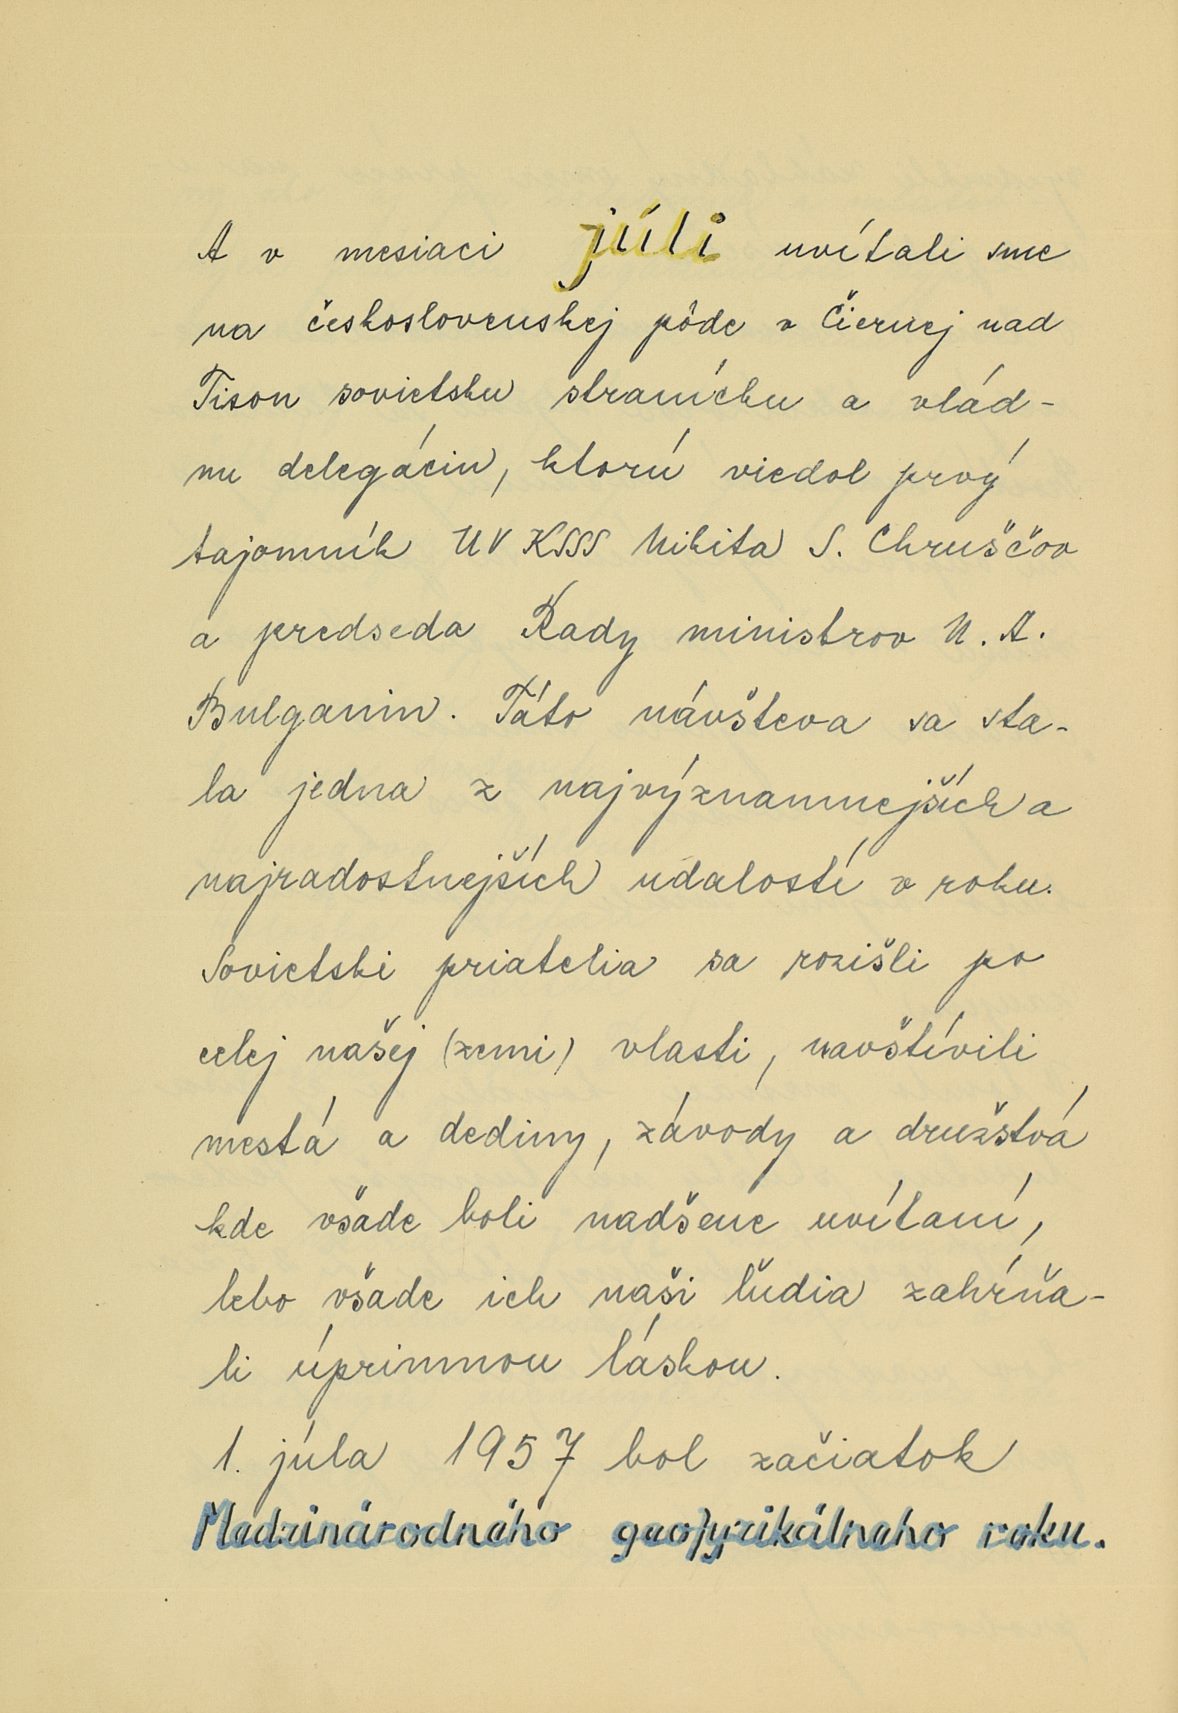 A v mesiaci júli uvítali sme
na československej pôde v Čiernej nad
Tisou sovietsku stranícku a vlád-
nu delegáciu, ktorú viedol prvý
tajomník UV KSSS Nikita S. Chruščov
a predseda Rady ministrov N. A.
Bulganin. Táto návšteva sa sta-
la jedna z najvýznamnejších a
najradostnejších udalostí v roku.
Sovietski priatelia sa rozišli po
celej našej (zemi) vlasti, navštívili
mestá a dediny, závody a družstvá
kde všade boli nadšene uvítaní,
lebo všade ich naši ľudia zahŕňa-
li úprimnou láskou.
1. júla 1957 bol začiatok
Medzinárodného geofyzikálneho roku.